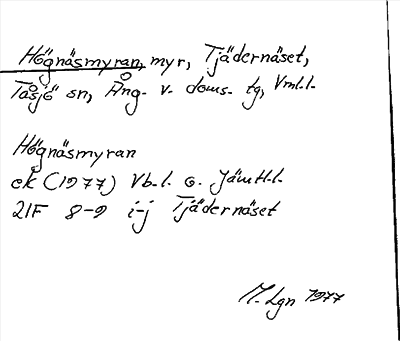 Högnäsmyran, myr, Tjädernäset,
Tåsjö sn, Ång. v. doms. tg, Vml.l.
Högnäsmyran
ek (1977) Vb.l. o. Jämtl.l.
21F 8-9 i-j Tjädernäset
M. Lgn 1977